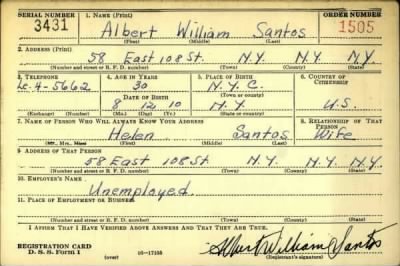 SERIAL NUMBER 1. NAME (Print) ORDER NUMBER
3431 Albert William Santos 1505
(First) (Middle) (Last)
2. ADDRESS (Print)
58 East 108 St. N.Y. N.Y. N.Y.
(Number and street or R. F. D. number) (Town) (County) (State)
3. TELEPHONE 4. AGE IN YEARS 5. PLACE OF BIRTH 6. COUNTRY OF CITIZENSHIP
Le-4-5662 30 N.Y.C.
DATE OF BIRTH (Town or county)
8 12 10 N.Y. U.S.
(Exchange) (Number) (Mo.) (Day) (Yr.) (State or country)
7. NAME OF PERSON WHO WILL ALWAYS KNOW YOUR ADDRESS 8. RELATIONSHIP OF THAT PERSON
Helen Santos Wife
(Mr., Mrs., Miss) (First) (Middle) (Last)
9. ADDRESS OF THAT PERSON
58 East 108 St N.Y. N.Y. N.Y.
(Number and street or R. F. D. number) (Town) (County) (State)
10. EMPLOYER'S NAME
Unemployed
11. PLACE OF EMPLOYMENT OR BUSINESS
(Number and street or R. F. D. number) (Town) (County) (State)
I AFFIRM THAT I HAVE VERIFIED ABOVE ANSWERS AND THAT THEY ARE TRUE.
REGISTRATION CARD
D. S. S. FORM 1 (over) 16-17105 Albert William Santos
(Registrant's signature)